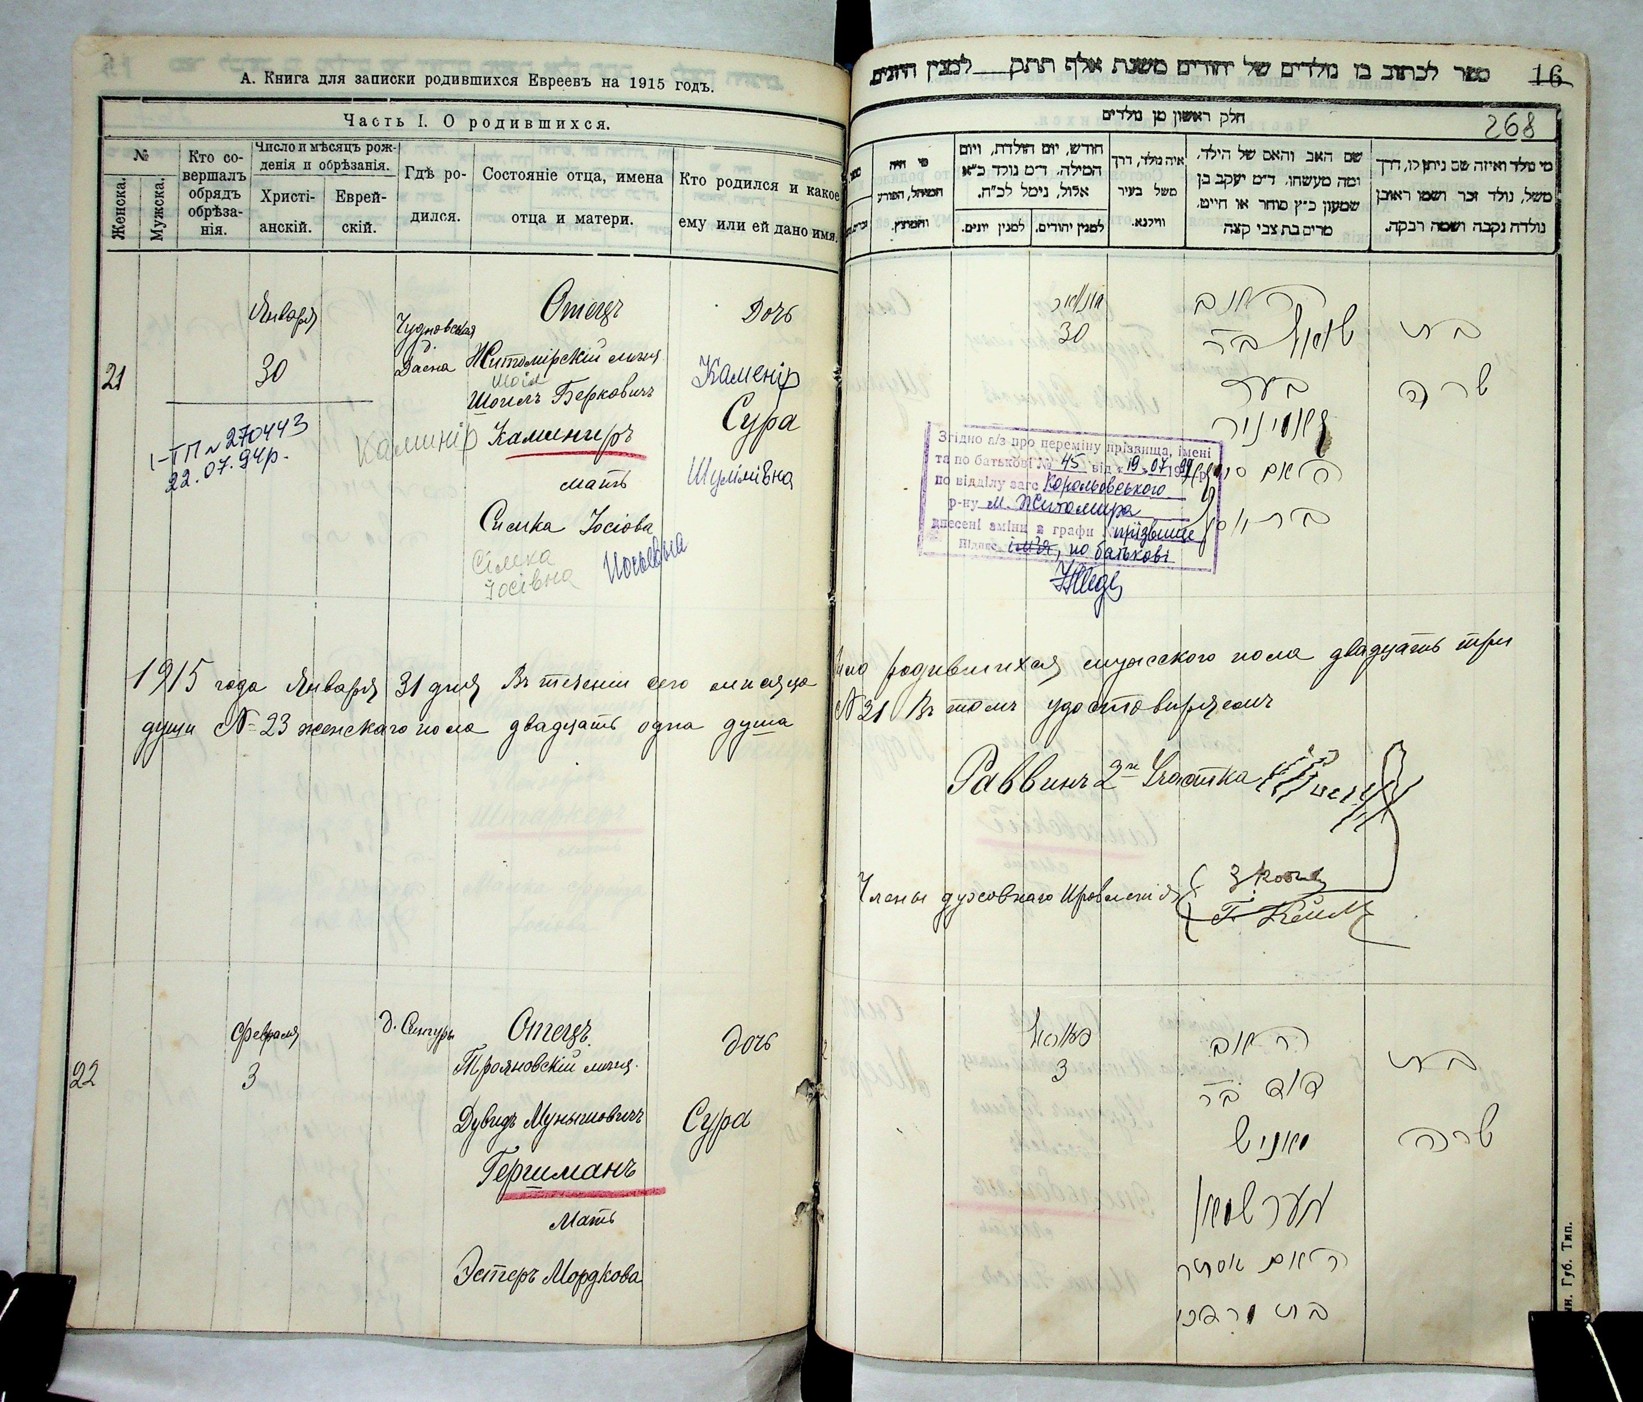 А. Книга для записки родившихся Евреевъ на 1915 годъ.
Часть I. О родившихся.
№
Женска.
Мужска.
Кто со-
вершалъ
обрядъ
обрѣза-
нія.
Число и мѣсяцъ рож-
денія и обрѣзанія.
Христі-
анскій.
Еврей-
скій.
Гдѣ ро-
дился.
Состояніе отца, имена
отца и матери.
Кто родился и какое
ему или ей дано имя.
21
Января
30
Чудновская
д.
Отецъ
Житомірскій
Шогелъ Берковичъ
Каминиръ
мать
Симка Іосіова
Сімка
Йосівна
Дочь
Каменір
Сура
Шулімівна
Камінір
I-ТП № 270443
22.07.94р.
1915 года Января 31 дня Въ теченіи сего мѣсяца
души № 23 женскаго пола двадцать одна душа
22
Февраля
3
д. Сингуры
Отецъ
Трояновскій
Дувидъ Мунышовичъ
Гершманъ
Мать
Эстеръ Мордкова
Дочь
Сура
ספר לכתוב בו נולדים של יהודים משנת אלף תתק למנין היונים
16
268
חלק ראשון מן נולדים
מי נולד ואיזה שם ניתן לו, דרך
משל, נולד זכר ושמו ראובן
נולדה נקבה ושמה רבקה.
שם האב והאם של הילד,
ומה מעשהו, ד״מ יעקב בן
שמעון כ״ץ סוחר או חייט,
מרים בת צבי קצה
איה נולד, דרך
משל בעיר
ווילנא.
חודש, יום הולדת, ויום
המילה, ד״מ נולד כ״א
אלול, נימל לכ״ח.
למנין יהודים.
למנין יונים.
מי היה
המוהל, הפורע
והמוצץ.
יאנואר
30
האב
שמואל ב״ר
בער
בת
שרה
Згідно а/з про переміну прізвища, імені
та по батькові № 45 від 19.07.1994р
по відділу загс Корольовського
р-ну м. Житомира
внесені зміни в графи прізвище
ім'я, по батькові
родившихся мужскаго пола двадцать три
№ 21 Въ томъ удостовѣряемъ
Раввинъ 2го Участка
Члены духовнаго Правленія
3
האב
דוד ב״ר
מוניש
הערשמאן
האם אסתר
בת מרדכי
בת
שרה
Губ. Тип.